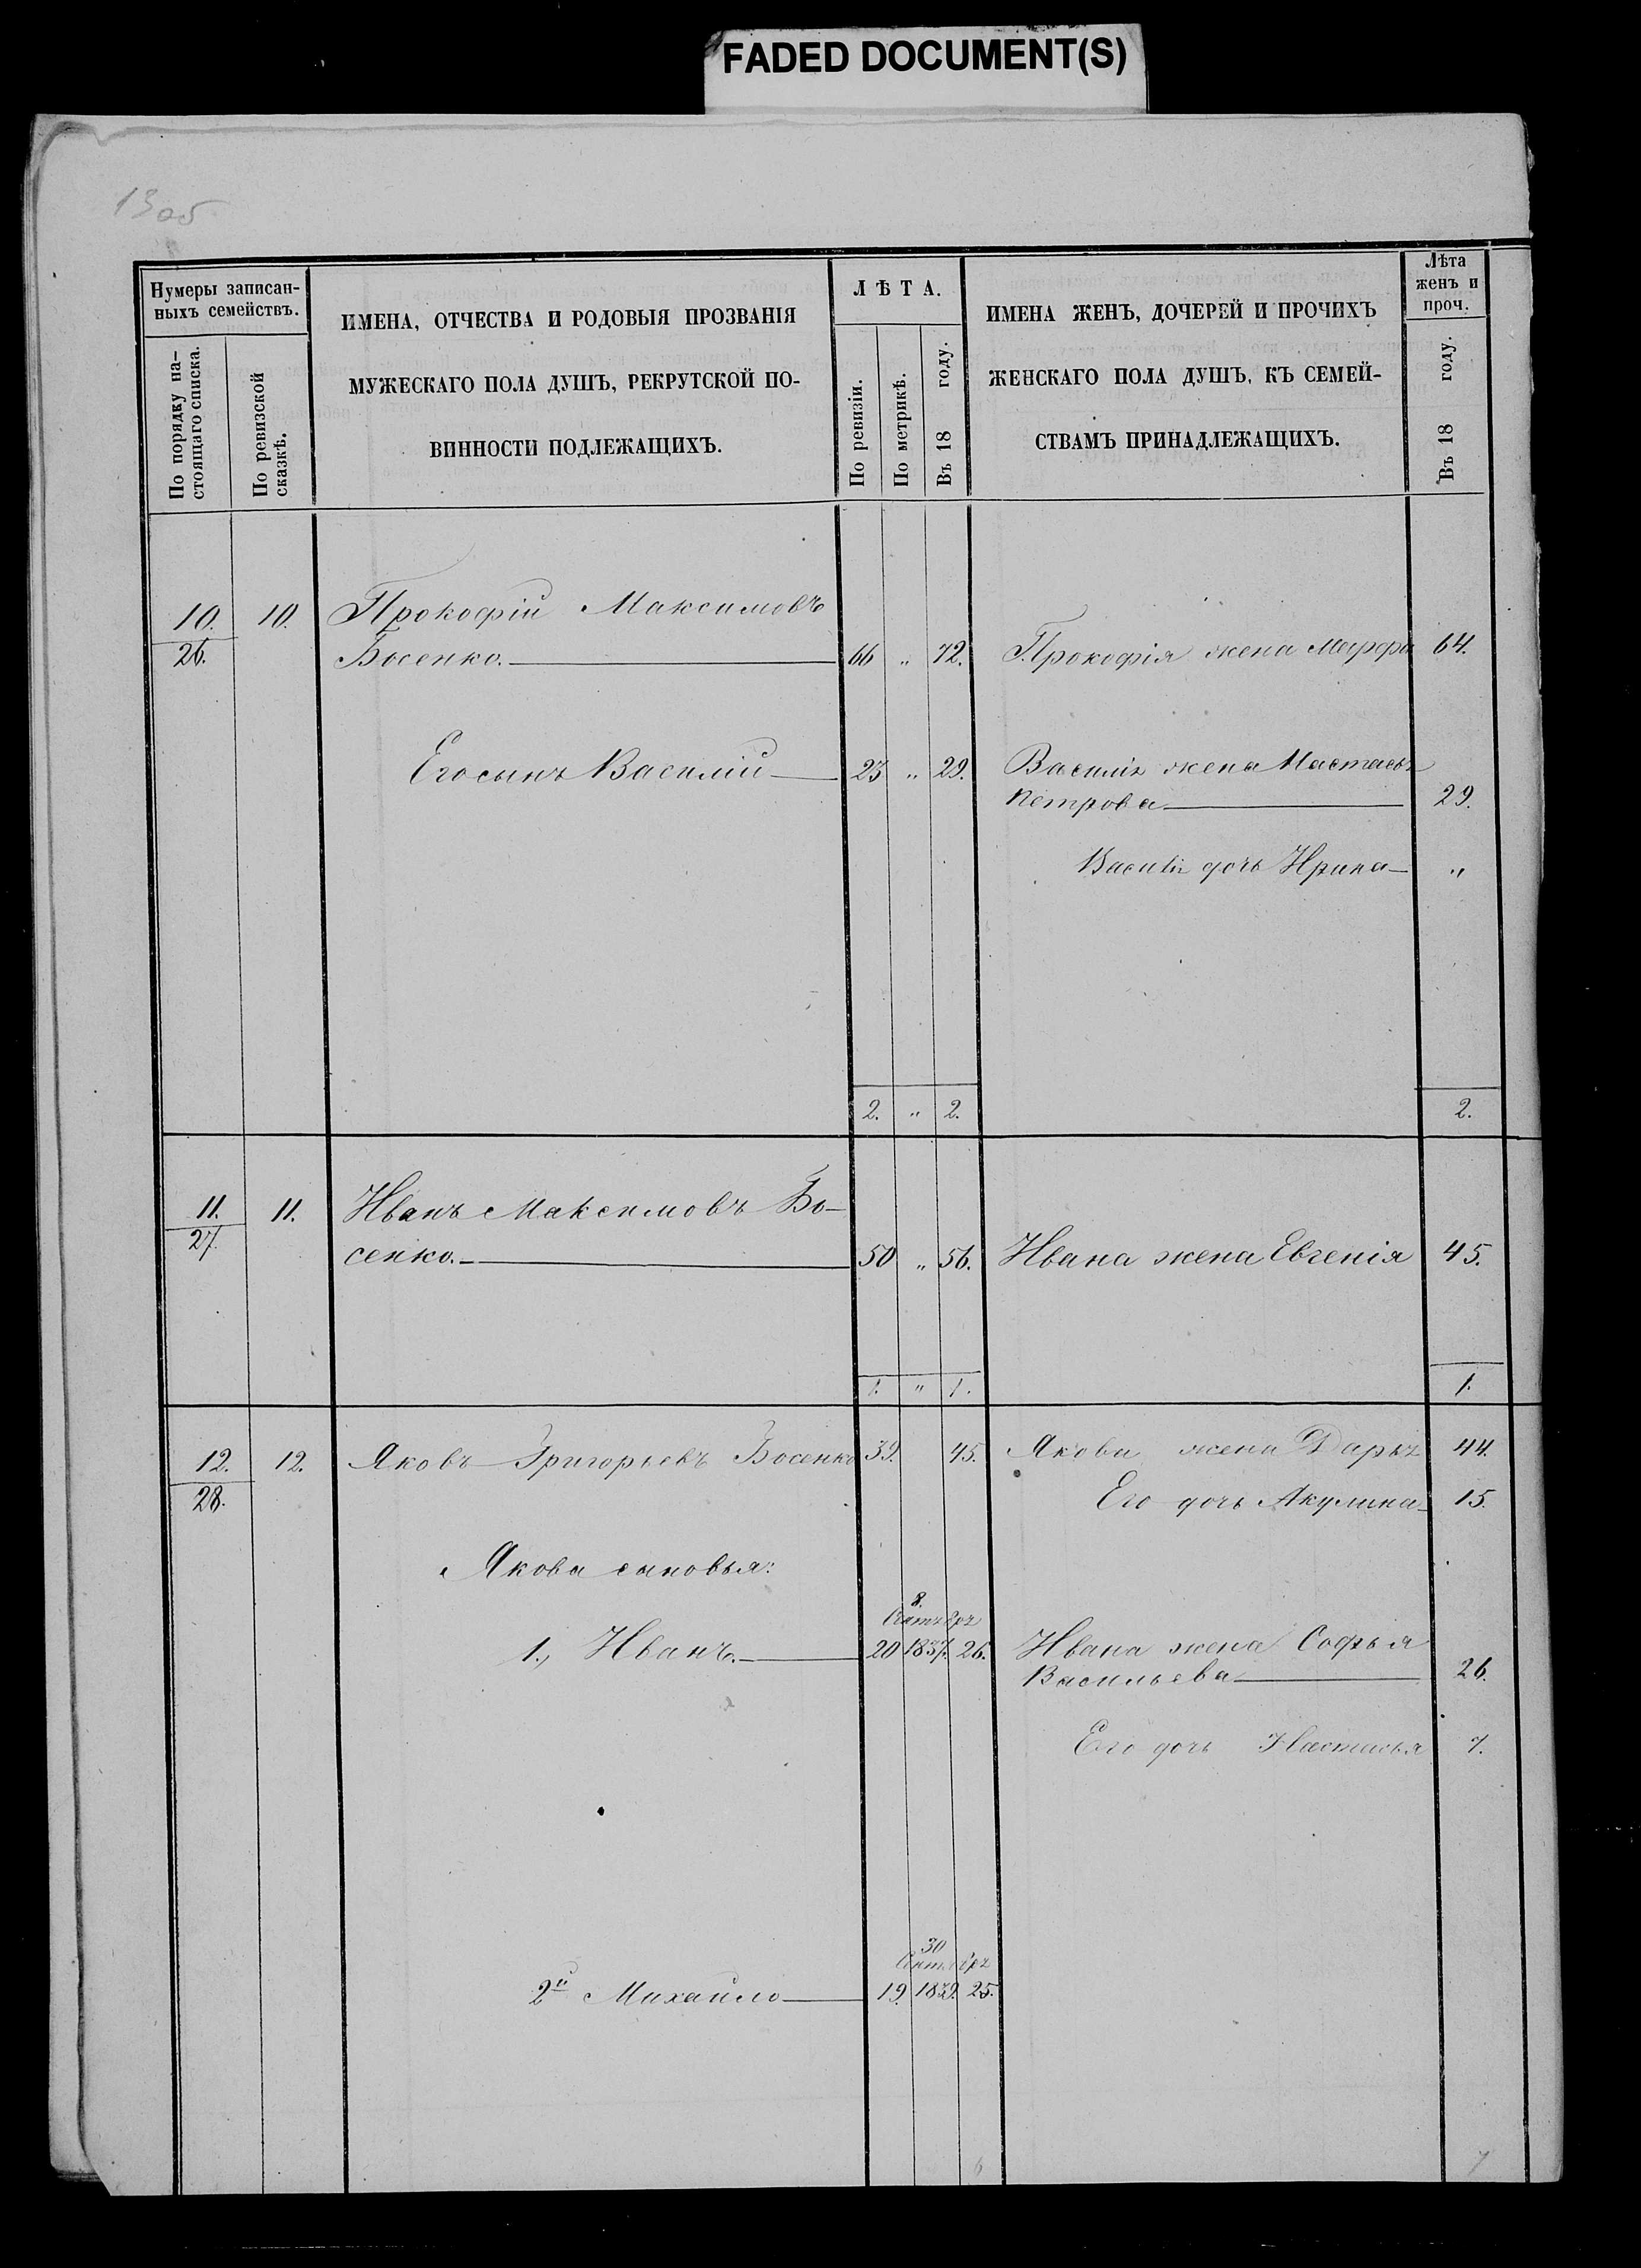 FADED DOCUMENT(S)
13об
Нумеры записан-
ныхъ семействъ.
По порядку на-
стоящаго списка.
По ревизской
сказкѣ.
ИМЕНА, ОТЧЕСТВА И РОДОВЫЯ ПРОЗВАНІЯ
МУЖЕСКАГО ПОЛА ДУШЪ, РЕКРУТСКОЙ ПО-
ВИННОСТИ ПОДЛЕЖАЩИХЪ.
ЛѢТА.
По ревизіи.
По метрикѣ.
Въ 18 году.
ИМЕНА ЖЕНЪ, ДОЧЕРЕЙ И ПРОЧИХЪ
ЖЕНСКАГО ПОЛА ДУШЪ, КЪ СЕМЕЙ-
СТВАМЪ ПРИНАДЛЕЖАЩИХЪ.
Лѣта
женъ и
проч.
Въ 18 году.
10. 10. Прокофій Максимовъ
26. Босенко. 66 „ 72. Прокофія жена Марфа 64.
Его сынъ Василій 23 „ 29. Василія жена Настасья
Петрова 29.
Василія дочь Ирина „
2. „ 2. 2.
11. 11. Иванъ Максимовъ Бо-
27. сенко. 50 „ 56. Ивана жена Евгенія 45.
1. „ 1. 1.
12. 12. Яковъ Григорьевъ Босенко 39. 45. Якова жена Дарья 44.
28. Его дочь Акулина 15.
Якова сыновья:
8.
Сентября
1., Иванъ. 20 1837. 26. Ивана жена Софья
Васильева 26.
Его дочь Настасья 7.
30
Сентября
2й Михайло 19. 1839. 25.
6 7